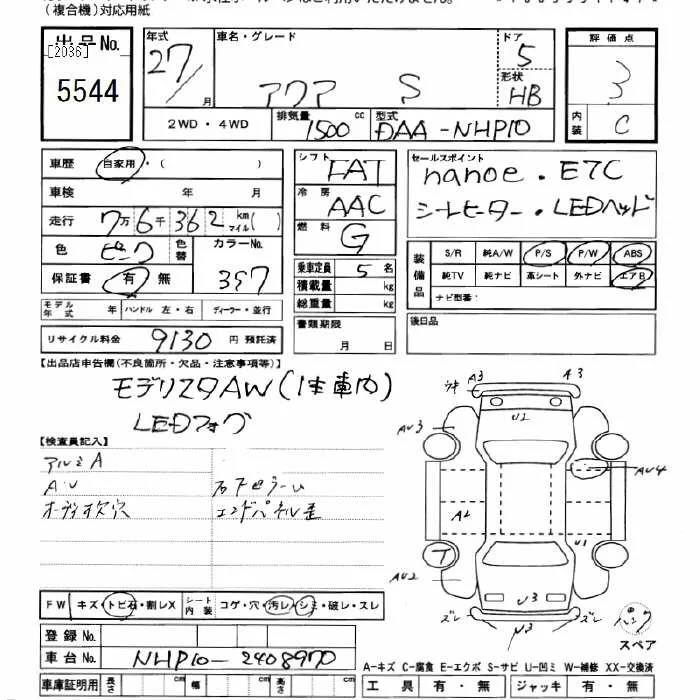 (複合機)対応用紙
出品No.
[2036]
5544
年式 27/月
車名・グレード アクア S
ドア 5
形状 HB
2WD・4WD
排気量 1500 cc
型式 DAA-NHP10
評価点 3
内装 C
車歴 自家用・( )
車検 年 月
走行 7万6千362 km マイル( )
色 ピンク 色替 カラーNo. 3P7
保証書 有・無
モデル年式 年 ハンドル 左・右 ディーラー・並行
リサイクル料金 9130 円 預託済
シフト FAT
冷房 AAC
燃料 G
乗車定員 5 名
積載量 kg
総重量 kg
書類期限
月 日
セールスポイント
nanoe・ETC
シートヒーター・LEDヘッド
装備品 S/R 純A/W P/S P/W ABS
純TV 純ナビ 革シート 外ナビ エアB
ナビ型番:
後日品
【出品店申告欄(不良箇所・欠品・注意事項等)】
モデリスタAW(1本車内)
LEDフォグ
【検査員記入】
アルミA
A・U
オーディオ欠穴
右下セラーム
エンドパネル歪
FW キズ・トビ石・割レX シート内装 コゲ・穴・汚レ・シミ・破レ・スレ
登録No.
車台No. NHP10-2408970
車庫証明用 長さ cm 幅 cm 高さ cm
A3 A3
U1
AU3
AU4
A1
U1
T
AU2
U3
ズレ U3 ズレ
パンク
スペア
A-キズ C-腐食 E-エクボ S-サビ U-凹ミ W-補修 XX-交換済
工具 有・無 ジャッキ 有・無